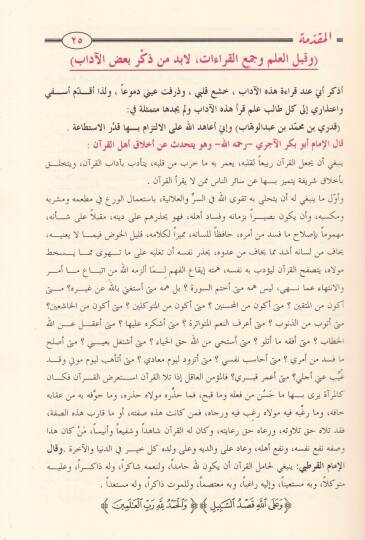 المقدّمة
٢٥
(وقبل العلم وجمع القراءات، لابد من ذكْر بعض الآداب)
أذكر أني عند قراءة هذه الآداب ، خشع قلبي ، وذرفت عيني دموعاً ، ولذا أقدّم أسفي
واعتذاري إلى كل طالب علم قرأ هذه الآداب ولم يجدها متمثلة في :
(قدري بن محمّد بن عبدالوهّاب) وإني أعاهد الله على الالتزام بها قدْر الاستطاعة .
قال الإمام أبو بكر الآجري -رحمه الله- وهو يتحدث عن أخلاق أهل القرآن :
ينبغي أن يجعل القرآن ربيعاً لقلبه، يعمر به ما خرب من قلبه، يتأدب بآداب القرآن، ويتخلّق
بأخلاق شريفة يتميز بها عن سائر الناس ممن لا يقرأ القرآن .
وأوّل ما ينبغي له أن يتحلى به تقوى الله في السرِّ والعلانية، باستعمال الورع في مطعمه ومشربه
ومكسبه، وأن يكون بصيراً بزمانه وفساد أهله، فهو يحذرهم على دينه، مقبلاً على شأنه،
مهموماً بإصلاح ما فسد من أمره، حافظاً للسانه، مميزاً لكلامه، قليل الخوض فيما لا يعنيه،
يخاف من لسانه أشد مما يخاف من عدوه، يحذر نفسه أن تغلبه على ما تهوى مما يسخط
مولاه، يتصفح القرآن ليؤدب به نفسه، همته إيقاع الفهم لِمَا ألزمه الله من اتباع ما أمر
والانتهاء عما نهى، ليس همه متى أختم السورة ؟ بل همه متى أستغني بالله عن غيره؟ متى
أكون من المتقين ؟ متى أكون من المحسنين ؟ متى أكون من المتوكلين ؟ متى أكون من الخاشعين؟
متى أتوب من الذنوب ؟ متى أعرف النعم المتواترة ؟ متى أشكره عليها ؟ متى أعقل عن الله
الخطاب ؟ متى أفقه ما أتلو ؟ متى أستحي من الله حق الحياء ؟ متى أشتغل بعيبي ؟ متى أصلح
ما فسد من أمري ؟ متى أحاسب نفسي ؟ متى أتزود ليوم معادي ؟ متى أتأهب ليوم موتي وقد
غُيِّب عني أجلي؟ متى أعمر قبري؟ فالمؤمن العاقل إذا تلا القرآن استعرض القرآن فكان
كالمرآة يرى بها ما حَسُن من فعله وما قبح، فما حذّره مولاه حذره، وما خوّفه به من عقابه
خافه، وما رغّبه فيه مولاه رغب فيه ورجاه، فمن كانت هذه صفته، أو ما قارب هذه الصفة،
فقد تلاه حق تلاوته، ورعاه حق رعايته، وكان له القرآن شاهداً وشفيعاً وأنيساً، مَنْ كان هذا
وصفه نفع نفسه، ونفع أهله، وعاد على والديه وعلى ولده كل خير في الدنيا والآخرة .وقال
الإمام القرطبي: ينبغي لحامل القرآن أن يكون لله حامداً، ولنعمه شاكراً، وله ذاكراً، وعليه
متوكلاً، وبه مستعيناً، وإليه راغباً، وبه معتصماً، وللموت ذاكراً، وله مستعداً .
﴿وَعَلَى اللَّهِ قَصْدُ السَّبِيلِ﴾ ﴿وَالْحَمْدُ لِلَّهِ رَبِّ الْعَالَمِينَ﴾